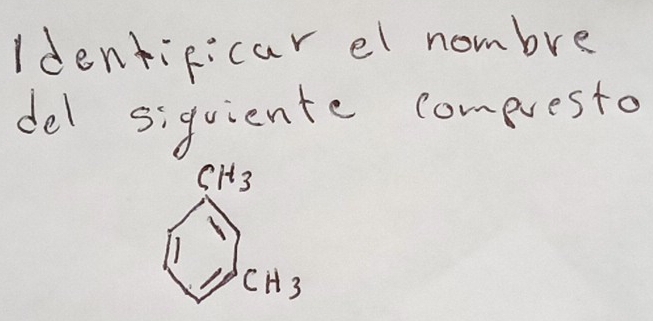 Identificar el nombre
del siguiente compuesto
CH3
CH3